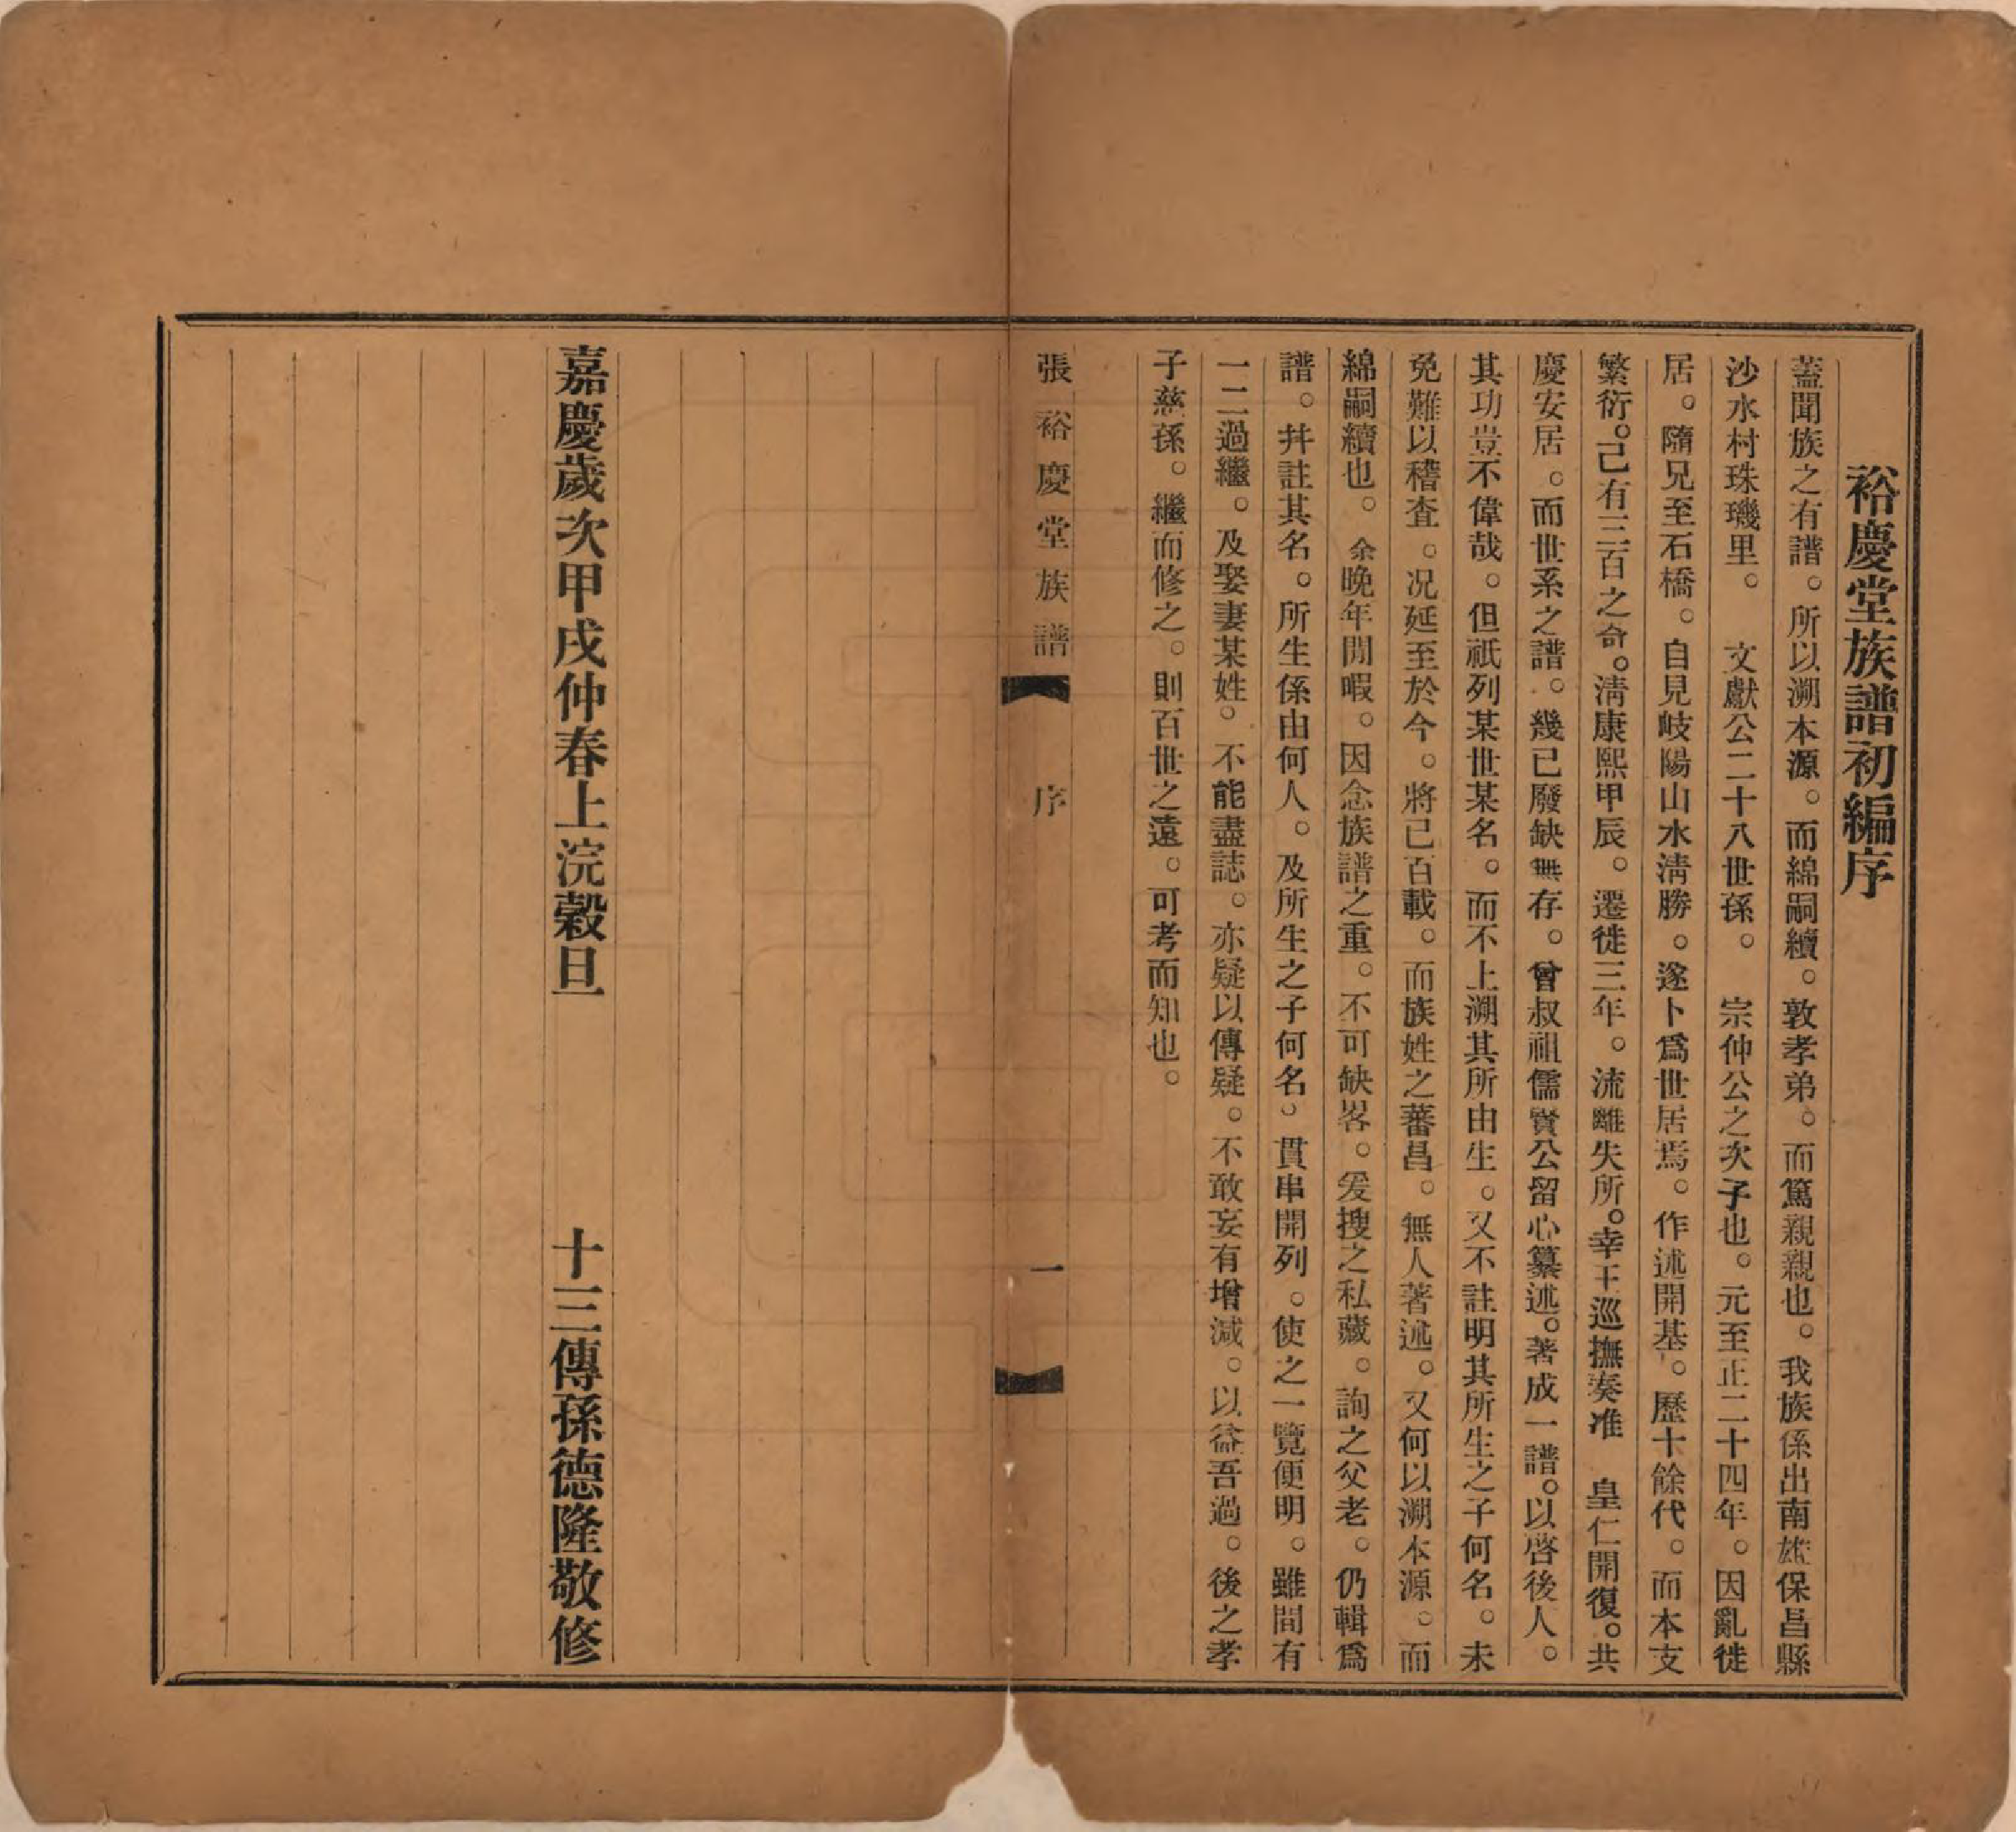 裕慶堂族譜初編序
蓋聞族之有譜。所以溯本源。而綿嗣續。敦孝弟。而篤親親也。我族係出南雄保昌縣
沙水村珠璣里。　文獻公二十八世孫。　宗仲公之次子也。元至正二十四年。因亂徙
居。隨兄至石橋。自見岐陽山水淸勝。遂卜爲世居焉。作述開基。歷十餘代。而本支
繁衍。己有三百之奇。淸康熙甲辰。遷徙三年。流離失所。幸王巡撫奏准　皇仁開復。共
慶安居。而世系之譜。幾已廢缺無存。曾叔祖儒賢公留心纂述。著成一譜。以啓後人。
其功豈不偉哉。但祇列某世某名。而不上溯其所由生。又不註明其所生之子何名。未
免難以稽查。况延至於今。將已百載。而族姓之蕃昌。無人著述。又何以溯本源。而
綿嗣續也。余晚年閒暇。因念族譜之重。不可缺畧。爰搜之私藏。詢之父老。仍輯爲
譜。幷註其名。所生係由何人。及所生之子何名。貫串開列。使之一覽便明。雖間有
一二過繼。及娶妻某姓。不能盡誌。亦疑以傳疑。不敢妄有增減。以益吾過。後之孝
子慈孫。繼而修之。則百世之遠。可考而知也。
張裕慶堂族譜　序　一
嘉慶歲次甲戌仲春上浣穀旦　十三傳孫德隆敬修